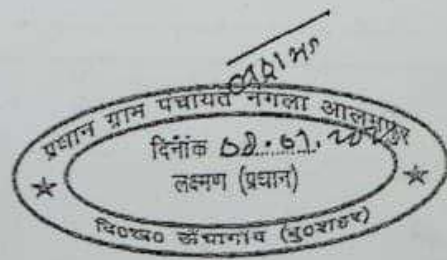 प्रधान ग्राम पंचायत नंगला आलमपुर
दिनांक
लक्ष्मण (प्रधान)
वि०ख० ऊँचागांव (बु०शहर)